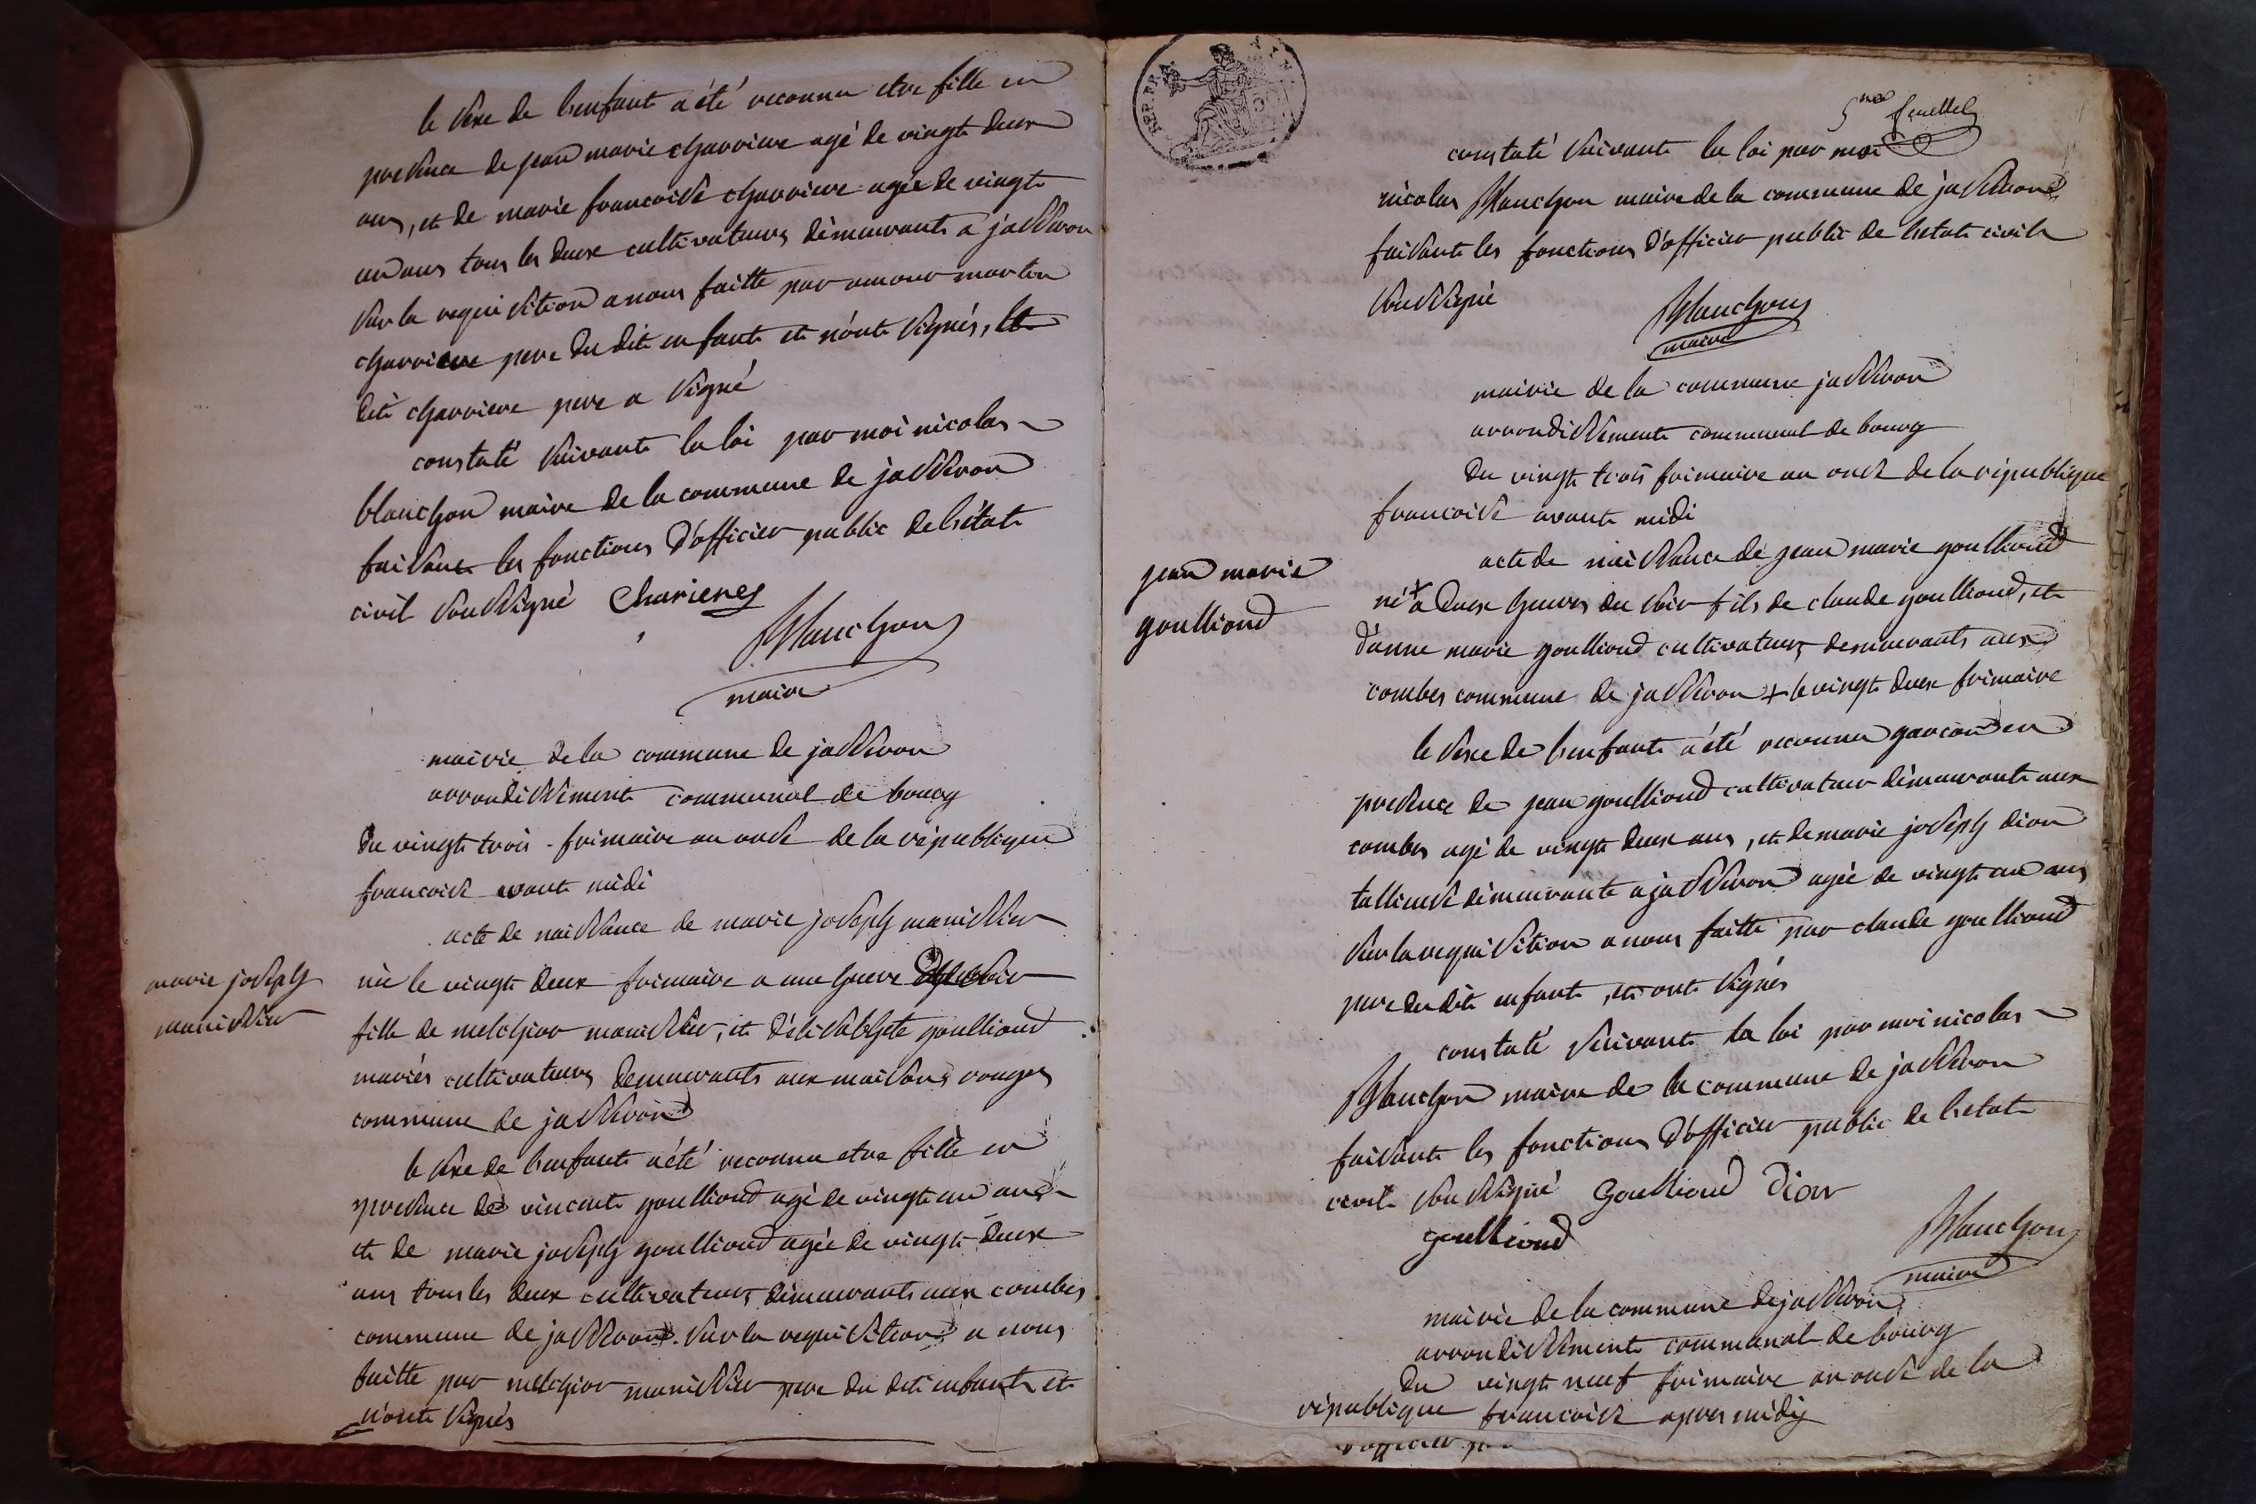 le sexe de l'enfant a été reconnu etre fille en
presence de jean marie charriere agé de vingt deux
ans, et de marie francoise charriere agée de vingt
un ans tous les deux cultivateurs démeurants a jasseron
sur la requisition a nous faitte par amour martin
charriere pere du dit enfant et n'ont signés, le
dit charriere pere a signé
constaté suivant la loi par moi nicolas
blanchon maire de la commune de jasseron
faisant les fonctions d'officier public de l'état
civil soussigné charieres
Blanchon
maire
mairie de la commune de jasseron
arrondissement communal de bourg
du vingt trois frimaire an onze de la république
francoise avant midi
acte de naissance de marie joseph manissier
marie joseph
manissier
née le vingt deux frimaire a une heure du soir
fille de melchior manissier, et d'élisabhete goullioud
mariés cultivateurs demeurants aux maisons rouges
commune de jasseron
le sexe de l'enfant a été reconnu etre fille en
presence de vincent goullioud agé de vingt un ans
et de marie joseph goullioud agée de vingt deux
ans tous les deux cultivateurs démeurants aux combes
commune de jasseron. sur la requisition a nous
faitte par melchior manissier pere du dit enfant et
n'ont signés
REP. FRA.
5me feuillet
constaté suivant la loi par moi
nicolas Blanchon maire de la commune de jasseron
faisant les fonctions d'officier public de l'etat civil
soussigné
Blanchon
maire
mairie de la commune jasseron
arrondissement communal de bourg
du vingt trois frimaire an onze de la république
francoise avant midi
acte de naissance de jean marie goullioud
jean marie
goullioud
né + a deux heures du soir fils de claude goullioud, et
d'anne marie goullioud cultivateurs demeurants aux
combes commune de jasseron + le vingt deux frimaire
le sexe de l'enfant a été reconnu garcon en
presence de jean goullioud cultivateur démeurant aux
combes agé de vingt deux ans, et de marie joseph dion
tallieuse démeurante a jasseron agée de vingt un ans
sur la requisition a nous faitte par claude goullioud
pere du dit enfant, et ont signés
constaté suivant la loi par moi nicolas
Blanchon maire de la commune de jasseron
faisant les fonctions d'officier public de l'etat
civil soussigné Goullioud dion
goullioud
Blanchon
maire
mairie de la commune de jasseron
arrondissement communal de bourg
du vingt neuf frimaire an onze de la
république francoise apres midy